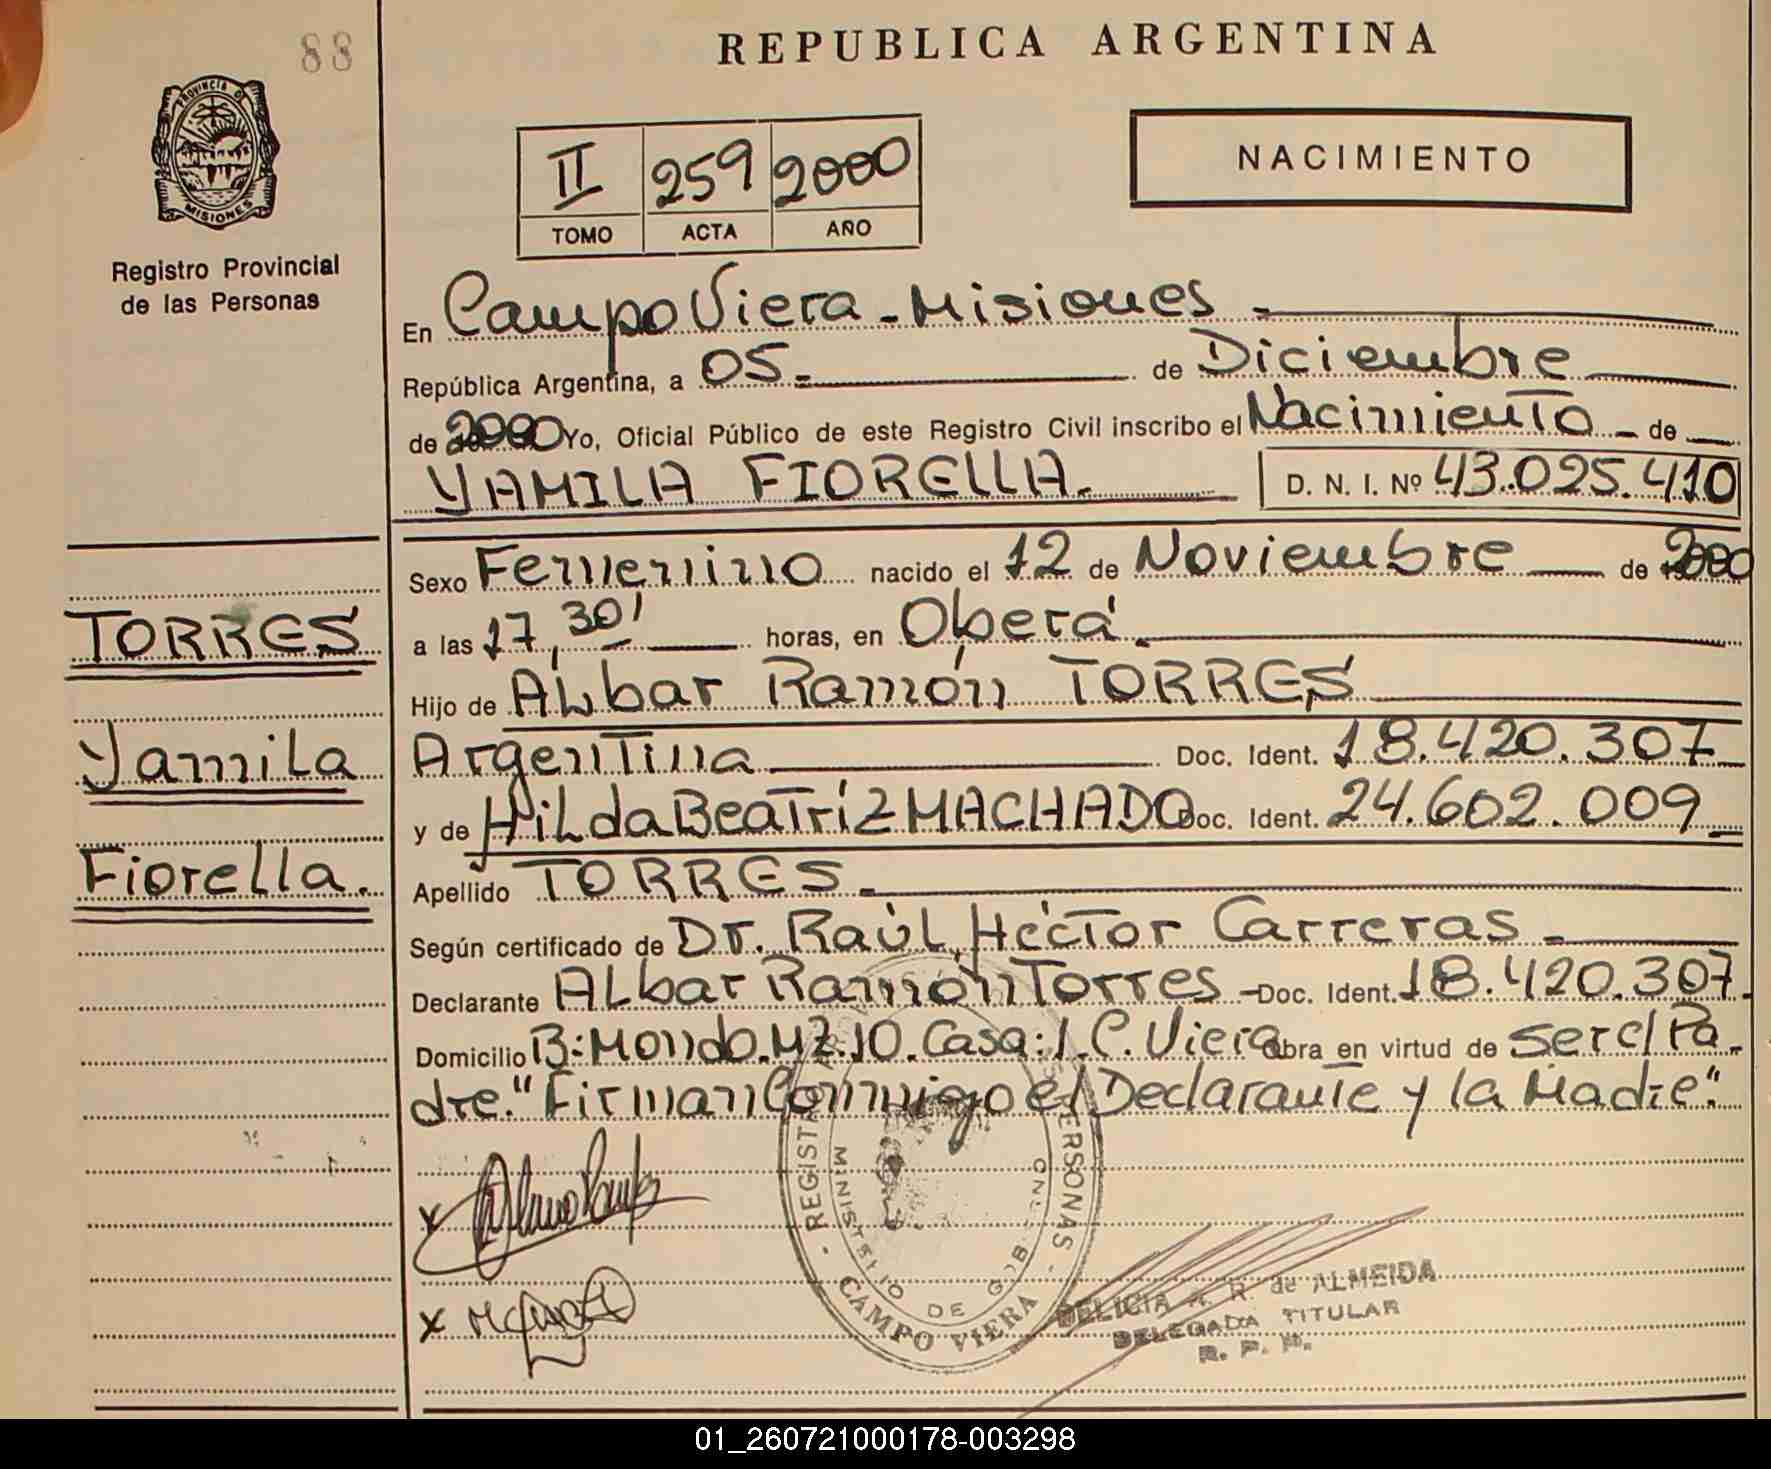 88
REPUBLICA ARGENTINA
PROVINCIA DE
MISIONES
Registro Provincial
de las Personas
II 259 2000
TOMO ACTA AÑO
NACIMIENTO
En Campo Viera - Misiones -
República Argentina, a 05 - de Diciembre
de 2000 Yo, Oficial Público de este Registro Civil inscribo el Nacimiento - de
YAMILA FIORELLA. D. N. I. Nº 43.025.410
Sexo Femenino nacido el 12 de Noviembre de 2000
a las 17,30' horas, en Oberá
Hijo de Albar Ramón TORRES
Argentina Doc. Ident. 18.420.307
y de Hilda Beatríz MACHADO Doc. Ident. 24.602.009
Apellido TORRES -
Según certificado de Dr. Raúl Héctor Carreras -
Declarante Albar Ramón Torres - Doc. Ident. 18.420.307
Domicilio B: Mondo. MZ.10. Casa: 1. C. Viera obra en virtud de ser el Pa-
dre. "Firman Conmigo el Declarante y la Madre".
TORRES
Yamila
Fiorella.
x
x
- CAMPO VIERA -
MINISTERIO DE GOB
DELICIA A. R. de ALMEIDA
DELEGADA TITULAR
R. P. P.
01_260721000178-003298